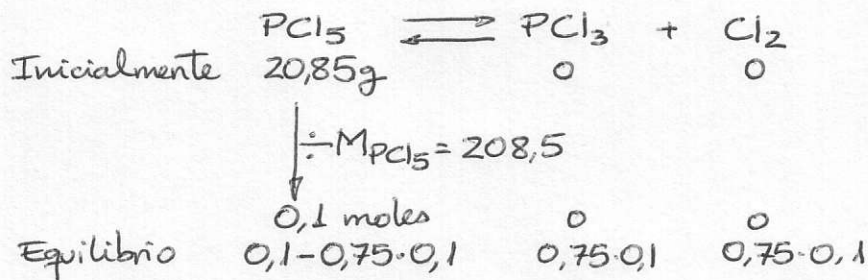 PCl₅ ⇌ PCl₃ + Cl₂
Inicialmente 20,85g 0 0
÷ M_PCl₅ = 208,5
0,1 moles 0 0
Equilibrio 0,1-0,75·0,1 0,75·0,1 0,75·0,1